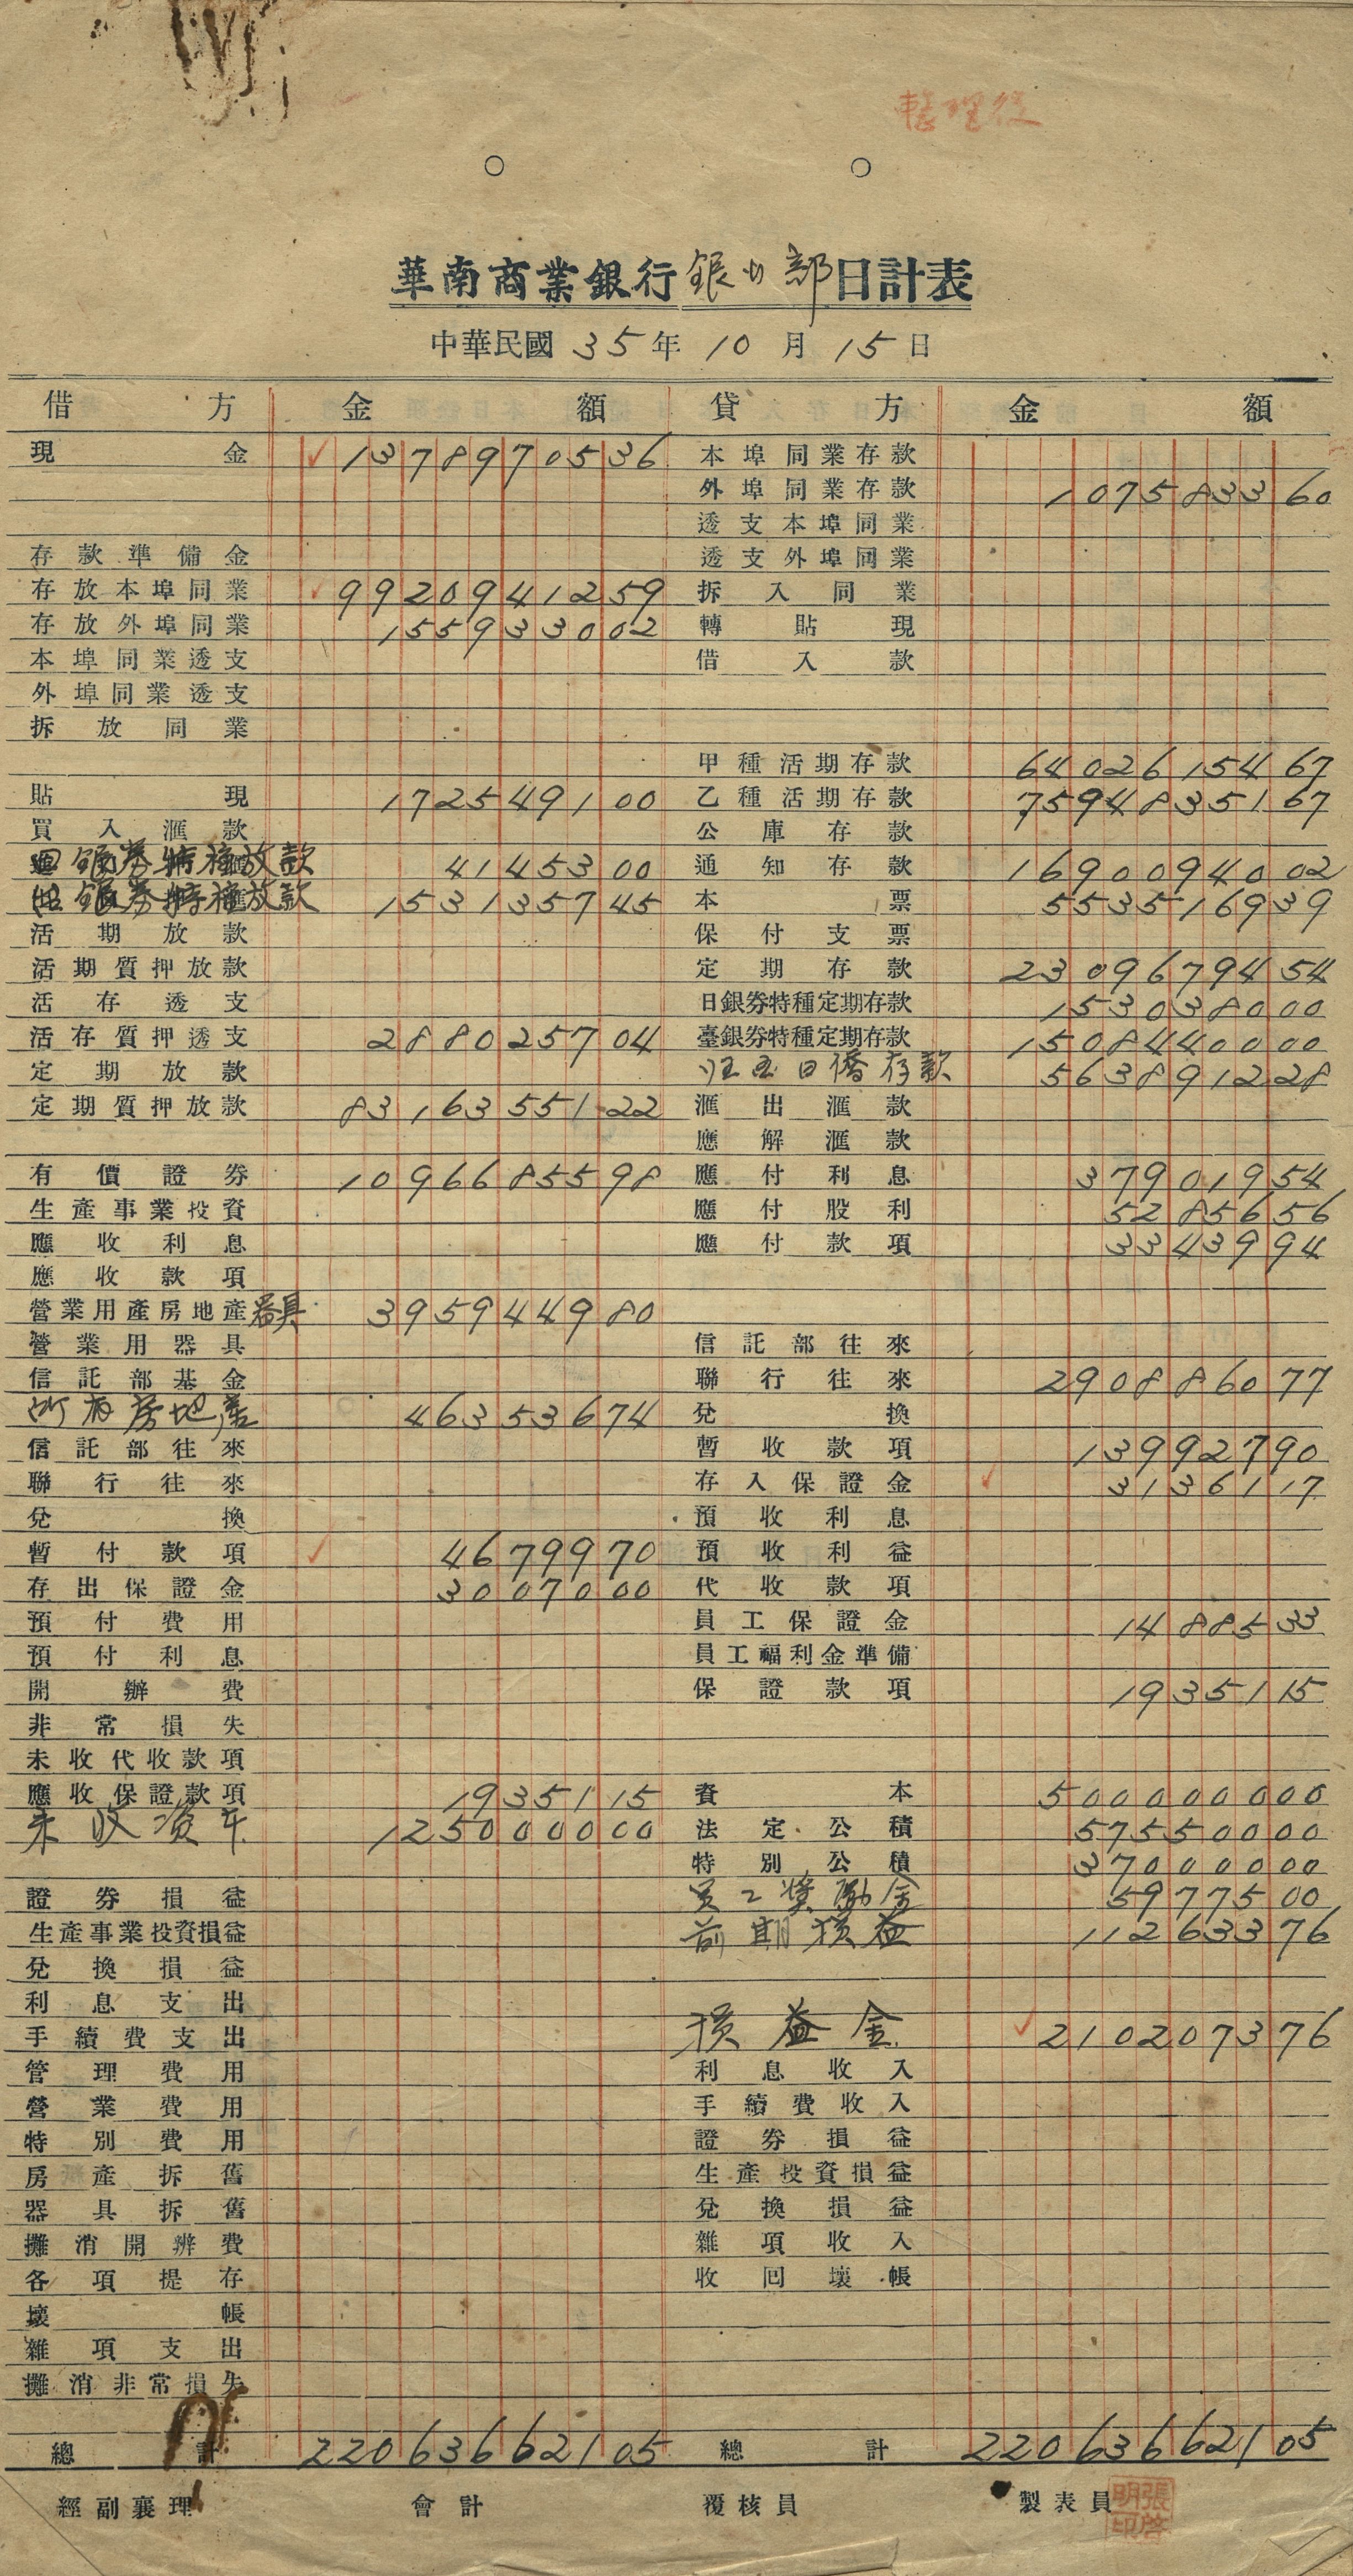 整理後
華南商業銀行 銀行部 日計表
中華民國 35 年 10 月 15 日
借方 金額 貸方 金額
現金 13789705 36 本埠同業存款
外埠同業存款 1075833 60
透支本埠同業
存款準備金 透支外埠同業
存放本埠同業 992094125 9 拆入同業
存放外埠同業 15593300 2 轉貼現
本埠同業透支 借入款
外埠同業透支
拆放同業
甲種活期存款 640261546 7
貼現 17254910 0 乙種活期存款 759483516 7
買入滙款 公庫存款
銀券特種放款 414530 0 通知存款 1690094002
銀券特種放款 153135745 本票 553516939
活期放款 保付支票
活期質押放款 定期存款 2309679454
活存透支 日銀券特種定期存款 153038000
活存質押透支 288025704 臺銀券特種定期存款 1508440000
定期放款 日僑存款 563891228
定期質押放款 8316355122 滙出滙款
應解滙款
有價證券 1096685598 應付利息 37901954
生產事業投資 應付股利 5285656
應收利息 應付款項 3343994
應收款項
營業用產房地產器具 395944980
營業用器具 信託部往來
信託部基金 聯行往來 290886077
所有房地產 46353674 兌換
信託部往來 暫收款項 13992790
聯行往來 存入保證金 3136117
兌換 預收利息
暫付款項 4679970 預收利益
存出保證金 3007000 代收款項
預付費用 員工保證金 1488533
預付利息 員工福利金準備
開辦費 保證款項 1935115
非常損失
未收代收款項
應收保證款項 1935115 資本 500000000
未收資本 125000000 法定公積 57550000
特別公積 37000000
證券損益 員工獎勵金 5977500
生產事業投資損益 前期損益 11263376
兌換損益
利息支出
手續費支出 損益金 210207376
管理費用 利息收入
營業費用 手續費收入
特別費用 證券損益
房產拆舊 生產投資損益
器具拆舊 兌換損益
攤消開辨費 雜項收入
各項提存 收回壞帳
壞帳
雜項支出
攤消非常損失
總計 22063662105 總計 22063662105
經副襄理 會計 覆核員 製表員
張啓明印